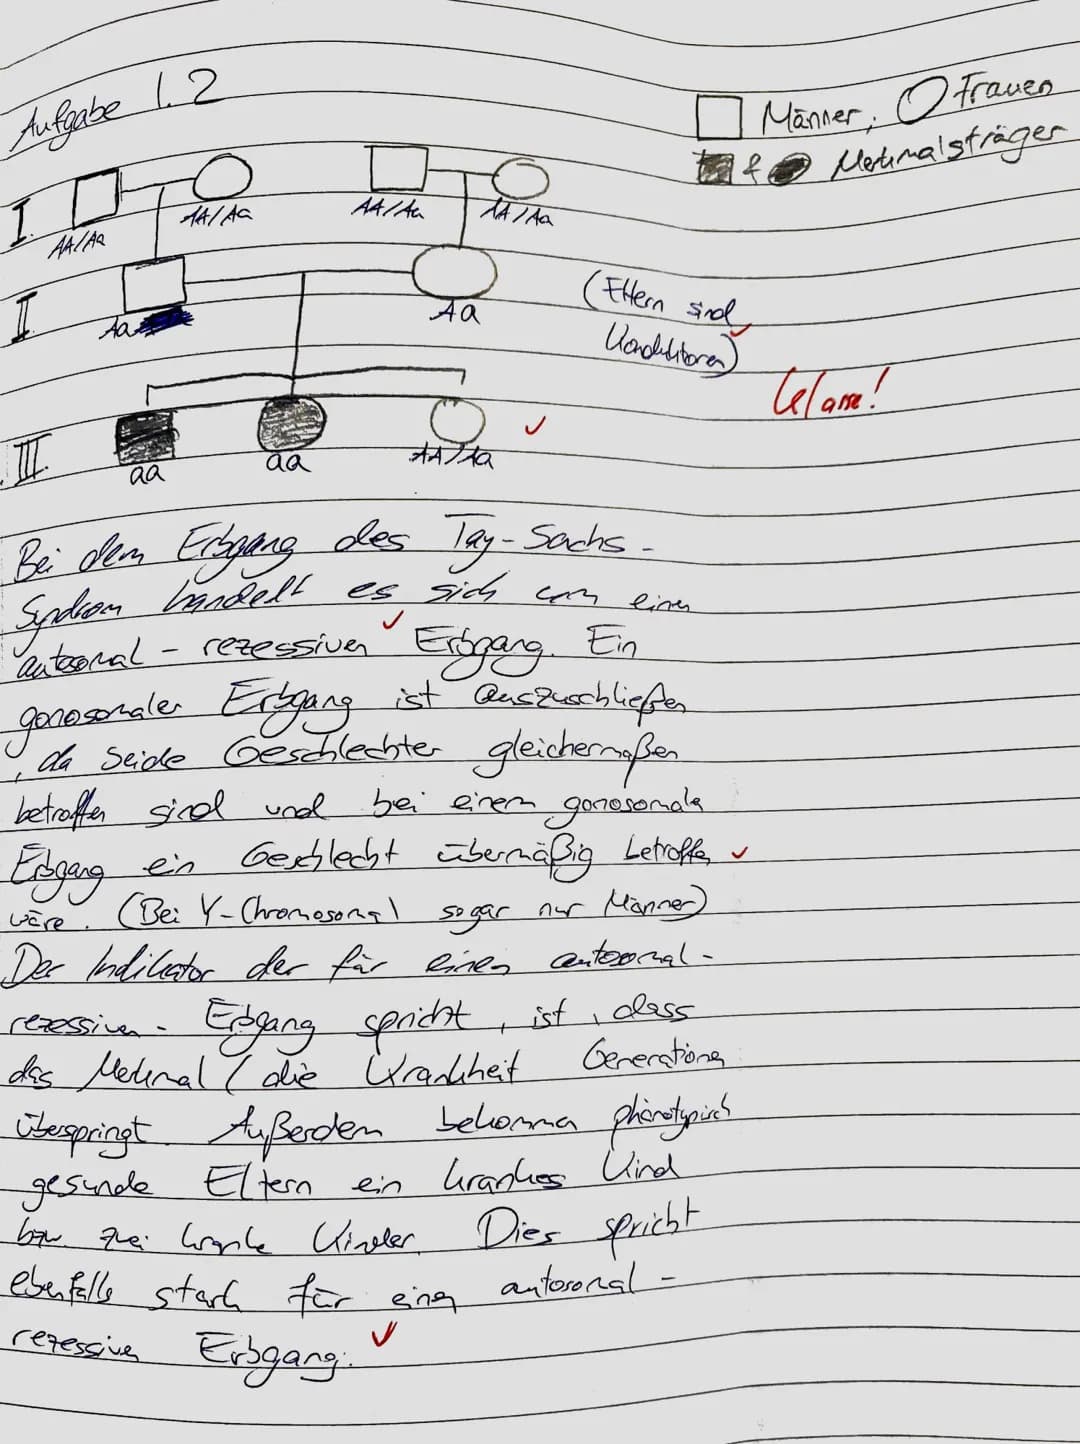 Aufgabe 1.2
Männer, Frauen
& Merkmalsträger
I
AA/Aa AA/Aa AA/Aa AA/Aa
II
Aa Aa
(Eltern sind
Konduktoren)
Klasse!
III
aa aa AA/Aa
Bei dem Erbgang des Tay-Sachs-
Syndrom handelt es sich um einen
autosomal-rezessiven Erbgang. Ein
gonosomaler Erbgang ist auszuschließen
, da beide Geschlechter gleichermaßen
betroffen sind und bei einem gonosomalen
Erbgang ein Geschlecht übermäßig betroffen
wäre. (Bei Y-Chromosomal sogar nur Männer)
Der Indikator der für einen autosomal-
rezessiven-Erbgang spricht, ist, dass
das Merkmal / die Krankheit Generationen
überspringt. Außerdem bekommen phänotypisch
gesunde Eltern ein krankes Kind
bzw. zwei kranke Kinder. Dies spricht
ebenfalls stark für einen autosomal-
rezessiven Erbgang.